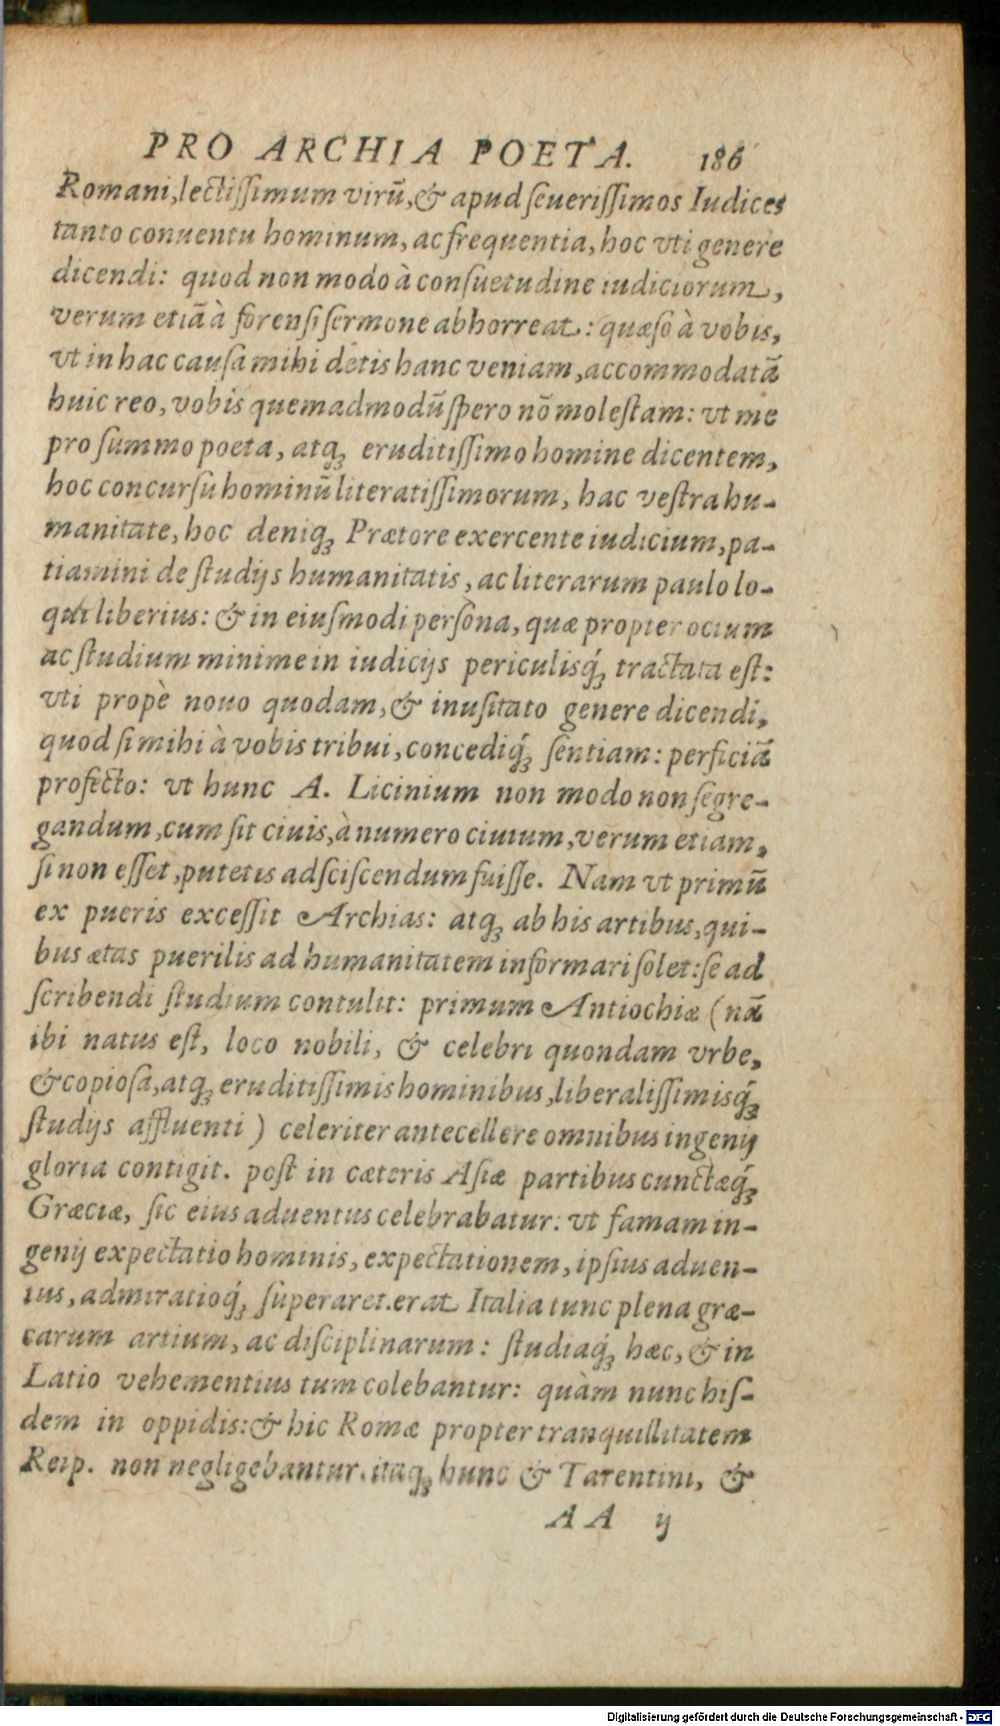 PRO ARCHIA POETA. 186
Romani, lectissimum virũ, & apud seuerissimos Iudices
tanto conuentu hominum, ac frequentia, hoc vti genere
dicendi: quod non modo à consuetudine iudiciorum,
verum etiã à forensi sermone abhorreat: quæso à vobis,
vt in hac causa mihi detis hanc veniam, accommodatã
huic reo, vobis quemadmodũ spero nõ molestam: vt me
pro summo poeta, atq; eruditissimo homine dicentem,
hoc concursu hominũ literatissimorum, hac vestra hu-
manitate, hoc deniq; Prætore exercente iudicium, pa-
tiamini de studijs humanitatis, ac literarum paulo lo-
qui liberius: & in eiusmodi persona, quæ propter ocium
ac studium minime in iudicijs periculisq́; tractata est:
vti propè nouo quodam, & inusitato genere dicendi,
quod si mihi à vobis tribui, concediq́; sentiam: perficiã
profecto: vt hunc A. Licinium non modo non segre-
gandum, cum sit ciuis, à numero ciuium, verum etiam,
si non esset, putetis adsciscendum fuisse. Nam vt primũ
ex pueris excessit Archias: atq; ab his artibus, qui-
bus ætas puerilis ad humanitatem informari solet: se ad
scribendi studium contulit: primum Antiochiæ (nã
ibi natus est, loco nobili, & celebri quondam vrbe,
& copiosa, atq; eruditissimis hominibus, liberalissimisq́;
studijs affluenti) celeriter antecellere omnibus ingenij
gloria contigit. post in cæteris Asiæ partibus cunctæq́;
Græciæ, sic eius aduentus celebrabatur: vt famam in-
genij expectatio hominis, expectationem, ipsius aduen-
tus, admiratioq́; superaret. erat Italia tunc plena græ-
carum artium, ac disciplinarum: studiaq́; hæc, & in
Latio vehementius tum colebantur: quàm nunc his-
dem in oppidis: & hic Romæ propter tranquillitatem
Reip. non negligebantur. itaq; hunc & Tarentini, &
AA ij
Digitalisierung gefördert durch die Deutsche Forschungsgemeinschaft - DFG